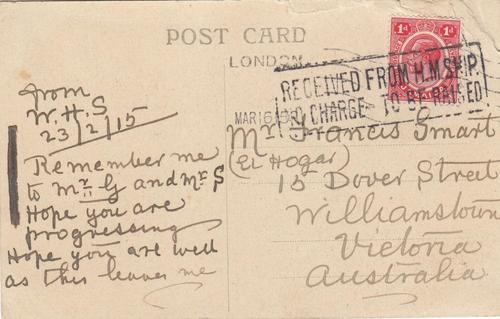 POST CARD
1d 1d
LONDON
RECEIVED FROM H.M. SHIP.
NO CHARGE TO BE RAISED
MAR 16
from
W.H.S
23/2/15
Remember me
to Mr G and Mr S
Hope you are
progressing
Hope you are well
as this leaves me
Mr Francis Smart
(El Hogar)
15 Dover Street
Williamstown
Victoria
Australia